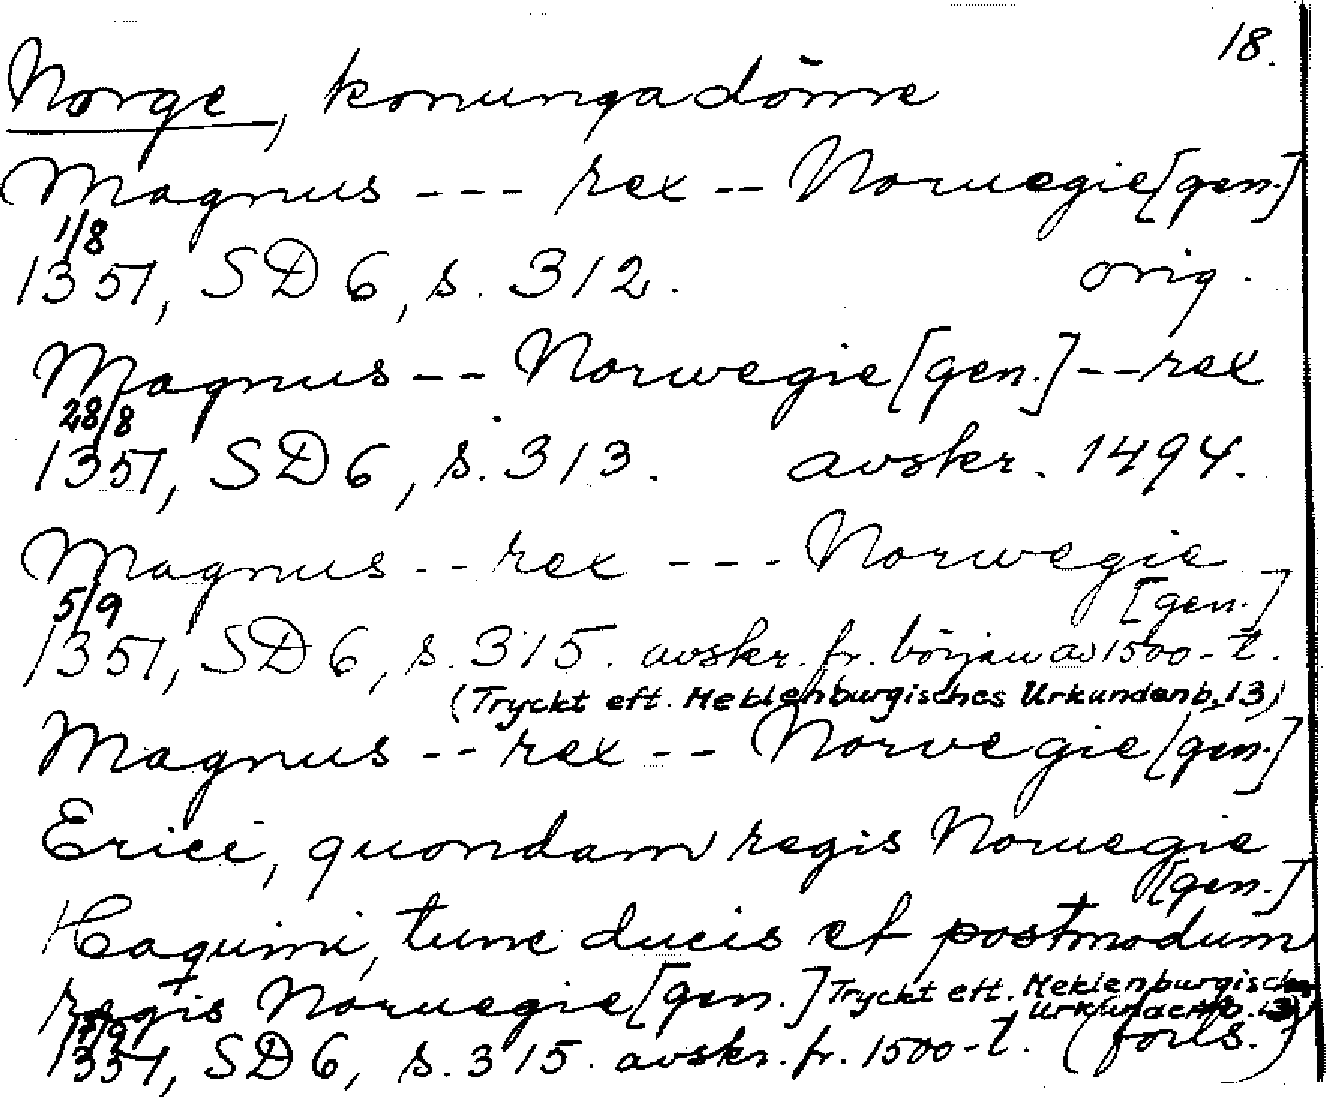 18.
Norge, konungadöme
Magnus --- rex -- Noruegie [gen.]
1/8
1351, SD 6, s. 312. orig.
Magnus -- Norwegie [gen.] -- rex
28/8
1351, SD 6, s. 313. avskr. 1494.
Magnus -- rex --- Norwegie
5/9 [gen.]
1351, SD 6, s. 315. avskr. fr. början av 1500-t.
(Tryckt eft. Meklenburgisches Urkundenb. 13)
Magnus -- rex -- Norvegie [gen.]
Erici, quondam regis Noruegie
[gen.]
Haquini, tunc ducis et postmodum
regis Noruegie [gen.] Tryckt eft. Meklenburgisches
Urkundenb. 13)
/9
1351, SD 6, s. 315. avskr. fr. 1500-t. (forts.)